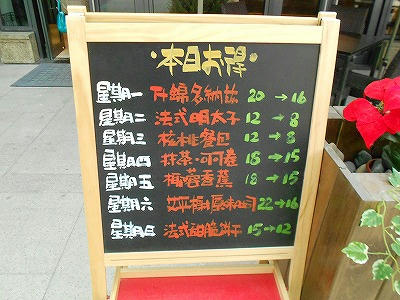 本日お得
星期一 升綿多納滋 20→16
星期二 法式明太子 12→8
星期三 核桃餐包 12→8
星期四 抹茶·可可捲 18→15
星期五 椰蓉香蕉 18→15
星期六 原味吐司 22→16
星期日 法式甜脆餅干 15→12